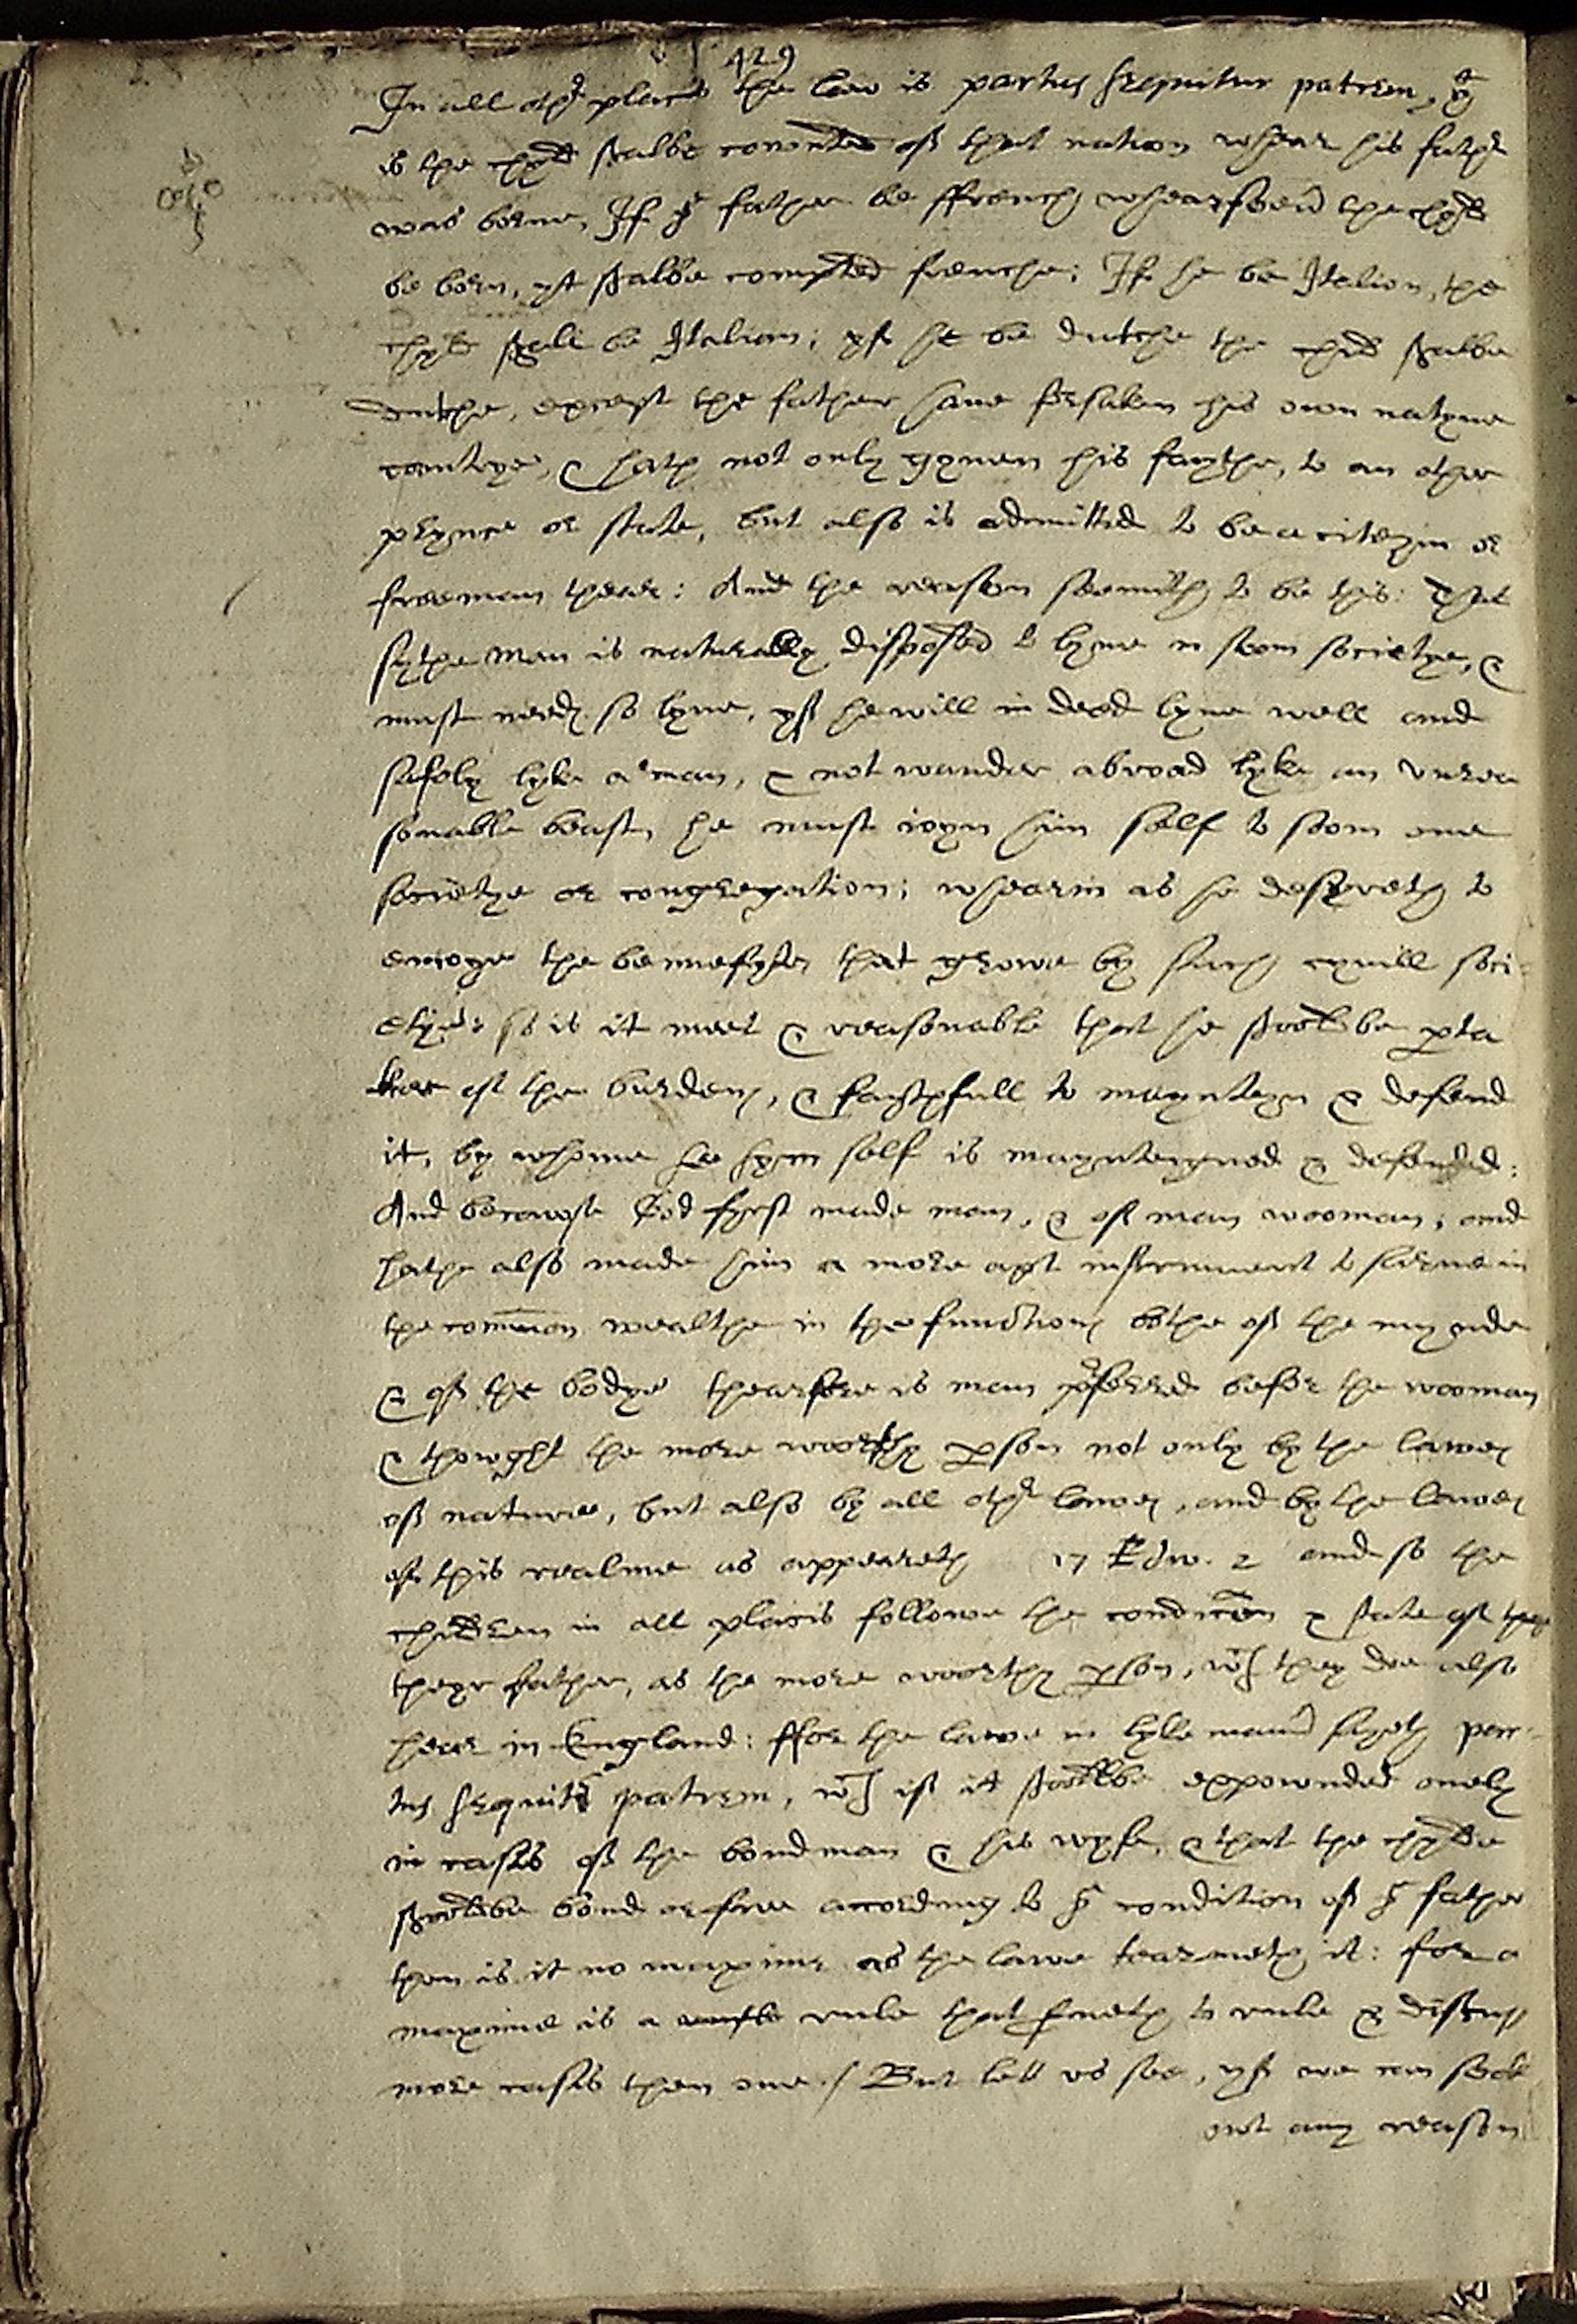 429
In all othr places the law is partus sequitur patrem, yt
is the chyld shalbe cownted off that nation whear his fathr
was borne, If ye father be ffrench whearsoever the chyld
be born, yt shalbe compted frenche: If he be Italion, the
chyld shall be Italian; yff he be dutche the child shalbe
dutche, except the father have forsaken his own natyve
contrye, & hath not only gyven his faythe, to an other
prynce or state, but also is admitted to be a citezyn or
freeman thear: And the reason seemith to be this: That
sythe man is naturally disposed to lyve in soom societye, &
must needs so lyve, yff he will in deed lyve well and
safely lyke a man, & not wander abroad lyke an vnrea
sonable beast, he must ioyn him self to soom one
societye or congregation; whearin as he desyreth to
enioye the bennefytes that growe by such cyvill soci-
etye: so is it meet & reasonable that he shoold be parta
ker off the burdens, & faythfull to maynteyn & defend
it, by whome he hym self is maynteyned & defended:
And becawse God fyrst made man, & off man wooman; and
hathe also made him a more apt instrument to serve in
the common wealthe in the functions bothe off the mynde
& off the bodye thearfore is man preferred before the wooman
& thowght the more woorthy person not only by the lawes
off nature, but also by all othr lawes, and by the lawes
off this realme as appeareth 17 Edw. 2 and so the
children in all placis followe the condicion & state off they
theyr father, as the more woorthy person, wch they doe also
hear in England: ffor the lawe in lyke maner sayeth par-
tus sequitur patrem, wch iff it shoolbe expownded onely
in casis off the bondman & his wyfe, & that the chylde
shoolbe bond or free according to ye condition off ye father
then is it no maxime as the lawe tearmeth it: for a
maxime is a rule that serveth to rule & discuss
more casis then one / But lett vs see, yff we can seek
owt any reason